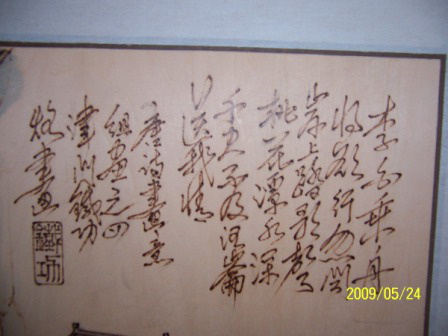 李白乘舟
将欲行忽闻
岸上踏歌声
桃花潭水深
千尺不及汪倫
送我情
唐诗書画意
组画之四
津川鐵功
烙書画
2009/05/24